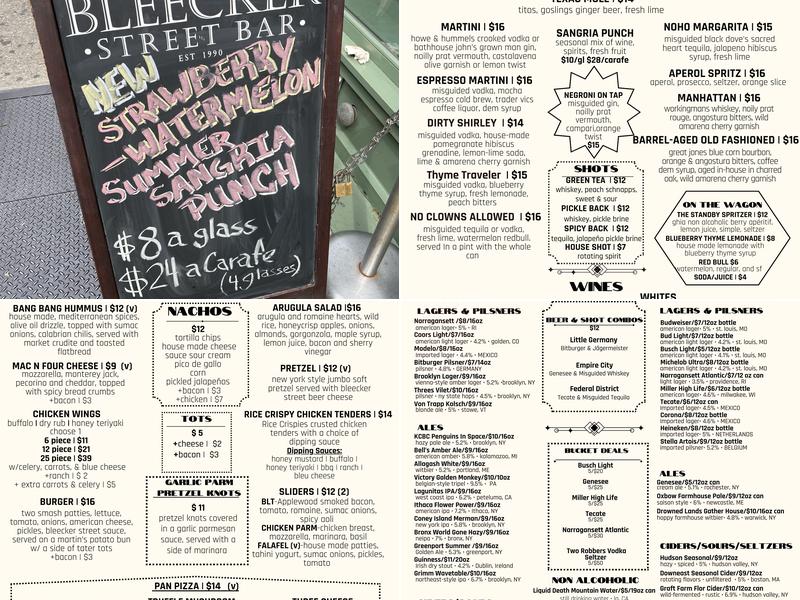 BLEECKER
• STREET BAR •
EST 1990
NEW
STRAWBERRY
-WATERMELON
SUMMER
SANGRIA
PUNCH
$8 a glass
$24 a Carafe
(4.9 glasses)
titos, goslings ginger beer, fresh lime
MARTINI | $16
howe & hummels crooked vodka or
bathhouse john's grown man gin,
noilly prat vermouth, castalavena
olive garnish or lemon twist
ESPRESSO MARTINI | $16
misguided vodka, mocha
espresso cold brew, trader vics
coffee liquor, dem syrup
DIRTY SHIRLEY | $14
misguided vodka, house-made
pomegranate hibiscus
grenadine, lemon-lime soda,
lime & amarena cherry garnish
Thyme Traveler | $15
misguided vodka, blueberry
thyme syrup, fresh lemonade,
peach bitters
NO CLOWNS ALLOWED | $16
misguided vodka, or tequila,
fresh lime, watermelon redbull,
served in a pint with the whole
can
SANGRIA PUNCH
seasonal mix of wine,
spirits, fresh fruit
$10/gl $28/carafe
NEGRONI ON TAP
misguided gin,
noilly prat
vermouth,
campari,orange
twist
$15
SHOTS
GREEN TEA | $12
whiskey, peach schnapps,
sweet & sour
PICKLE BACK | $12
whiskey, pickle brine
SPICY BACK | $12
tequila, jalapeño pickle brine
HOUSE SHOT | $7
rotating spirit
WINES
WHITES
NOHO MARGARITA | $15
misguided black dove's sacred
heart tequila, jalapeno hibiscus
syrup, fresh lime
APEROL SPRITZ | $16
aperol, prosecco, seltzer, orange slice
MANHATTAN | $16
workingmans whiskey, noily prat
rouge, angostura bitters, wild
amarena cherry garnish
BARREL-AGED OLD FASHIONED | $16
great jones blue corn bourbon,
orange & angostura bitters, coffee
dem syrup, aged in-house in charred
oak, wild amarena cherry garnish
ON THE WAGON
THE STANDBY SPRITZER | $12
ghia non alcoholic berry apéritif,
lemon juice, simple, seltzer
BLUEBERRY THYME LEMONADE | $8
house made lemonade with
blueberry thyme syrup
RED BULL $6
watermelon, regular, and sf
SODA/JUICE | $4
BANG BANG HUMMUS | $12 (v)
house made, mediterranean spices,
olive oil drizzle, topped with sumac
onions, calabrian chilis, served with
market crudite and toasted
flatbread
MAC N FOUR CHEESE | $9 (v)
mozzarella, monterey jack,
pecorino and cheddar, topped
with spicy bread crumbs
+bacon | $3
CHICKEN WINGS
buffalo | dry rub | honey teriyaki
choose 1
6 piece | $11
12 piece | $21
25 piece | $39
w/celery, carrots, & blue cheese
+ranch | $ 2
+ extra carrots & celery | $5
BURGER | $16
two smash patties, lettuce,
tomato, onions, american cheese,
pickles, bleecker street sauce,
served on a martin's potato bun
w/ a side of tater tots
+bacon | $3
NACHOS
$12
tortilla chips
house made cheese
sauce sour cream
pico de gallo
corn
pickled jalapeños
+bacon | $3
+chicken | $7
TOTS
$ 5
+cheese | $2
+bacon | $3
GARLIC PARM
PRETZEL KNOTS
$ 11
pretzel knots covered
in a garlic parmesan
sauce, served with a
side of marinara
PAN PIZZA | $14 (v)
ARUGULA SALAD |$16
arugula and romaine hearts, wild
rice, honeycrisp apples, onions,
almonds, gorgonzola, maple syrup,
lemon juice, bacon and sherry
vinegar
PRETZEL | $12 (v)
new york style jumbo soft
pretzel served with bleecker
street beer cheese
RICE CRISPY CHICKEN TENDERS | $14
Rice Crispies crusted chicken
tenders with a choice of
dipping sauce
Dipping Sauces:
honey mustard | buffalo |
honey teriyaki | bbq | ranch |
bleu cheese
SLIDERS | $12 (2)
BLT-Applewood smoked bacon,
tomato, romaine, sumac onions,
spicy aoli
CHICKEN PARM-chicken breast,
mozzarella, marinara, basil
FALAFEL (v)-house made patties,
tahini yogurt, sumac onions, pickles,
tomato
LAGERS & PILSNERS
Narragansett /$8/16oz
american lager• 5% • RI
Coors Light/$7/12oz
american light lager • 4.2% • golden, CO
Modelo/$8/16oz
imported lager • 4.4% • MEXICO
Bitburger Pilsner/$7/14oz
pilsner • 4.8% • GERMANY
Brooklyn Lager/$9/16oz
vienna-style amber lager • 5.2% •brooklyn, NY
Threes Vliet/$10/16oz
pilsner • ny state hops • 4.5% • brooklyn, NY
Von Trapp Kolsch/$9/16oz
blonde ale • 5% • stowe, VT
ALES
KCBC Penguins In Space/$10/16oz
hazy pale ale • 5.2% • brooklyn, NY
Bell's Amber Ale/$9/16oz
american amber• 5.8% • kalamazoo, MI
Allagash White/$9/16oz
witbier • 5.2% • portland, ME
Victory Golden Monkey/$10/10oz
belgian-style tripel • 9.5% • PA
Lagunitas IPA/$9/16oz
west coast ipa • 6.2% • petaluma, CA
Ithaca Flower Power/$9/16oz
american ipa • 7.2% • ithaca, NY
Coney Island Merman/$9/16oz
new york ipa • 5.8% • brooklyn, NY
Bronx World Gone Hazy/$9/16oz
neipa • 7% • bronx, NY
Greenport Summer /$9/16oz
Golden Ale • 5.3% • greenport, NY
Guinness/$11/20oz
irish dry stout • 4.2% • Dublin, Ireland
Grimm Wavetable/$10/16oz
northeast-style ipa • 6.7% • brooklyn, NY
BEER & SHOT COMBOS
$12
Little Germany
Bitburger & Jägermeister
Empire City
Genesee & Misguided Whiskey
Federal District
Tecate & Misguided Tequila
BUCKET DEALS
Busch Light
5/$20
Genesee
5/$25
Miller High Life
5/$25
Tecate
5/$25
Narragansett Atlantic
5/$30
Two Robbers Vodka
Seltzer
5/$50
NON ALCOHOLIC
Liquid Death Mountain Water/$5/19oz can
still drinking water • la, CA
LAGERS & PILSNERS
Budweiser/$7/12oz bottle
american lager• 5% • st. louis, MO
Bud Light/$7/12oz bottle
american light lager• 4.2% • st. louis, MO
Busch Light/$5/12oz can
american light lager• 4.1% • st. louis, MO
Michelob Ultra/$8/12oz can
american light lager• 4.2% • st. louis, MO
Narragansett Atlantic/$7/12 oz can
light lager • 3.5% • providence, RI
Miller High Life/$6/12oz can
american lager • 4.6% • milwaukee, WI
Tecate/$6/12oz can
imported lager• 4.5% • MEXICO
Corona/$8/12oz bottle
imported lager• 4.6% • MEXICO
Heineken/$8/12oz bottle
imported lager• 5% • NETHERLANDS
Stella Artois/$9/12oz bottle
imported pilsner• 5.2% • BELGIUM
ALES
Genesee/$5/12oz can
cream ale • 5.1% • rochester, NY
Oxbow Farmhouse Pale/$9/12oz can
saison style • 6% • newcastle, ME
Drowned Lands Gather House/$10/16oz can
hoppy farmhouse witbier• 4.8% • warwick, NY
CIDERS/SOURS/SELTZERS
Hudson Seasonal/$9/12oz
hazy • spiced • 5% • hudson valley, NY
Downeast Seasonal Cider/$9/12oz
rotating flavors • unfiltered • 5% • boston, MA
Graft Farm Flor Cider/$10/12oz can
wild-fermented • rustic • 6.9% • hudson valley, NY